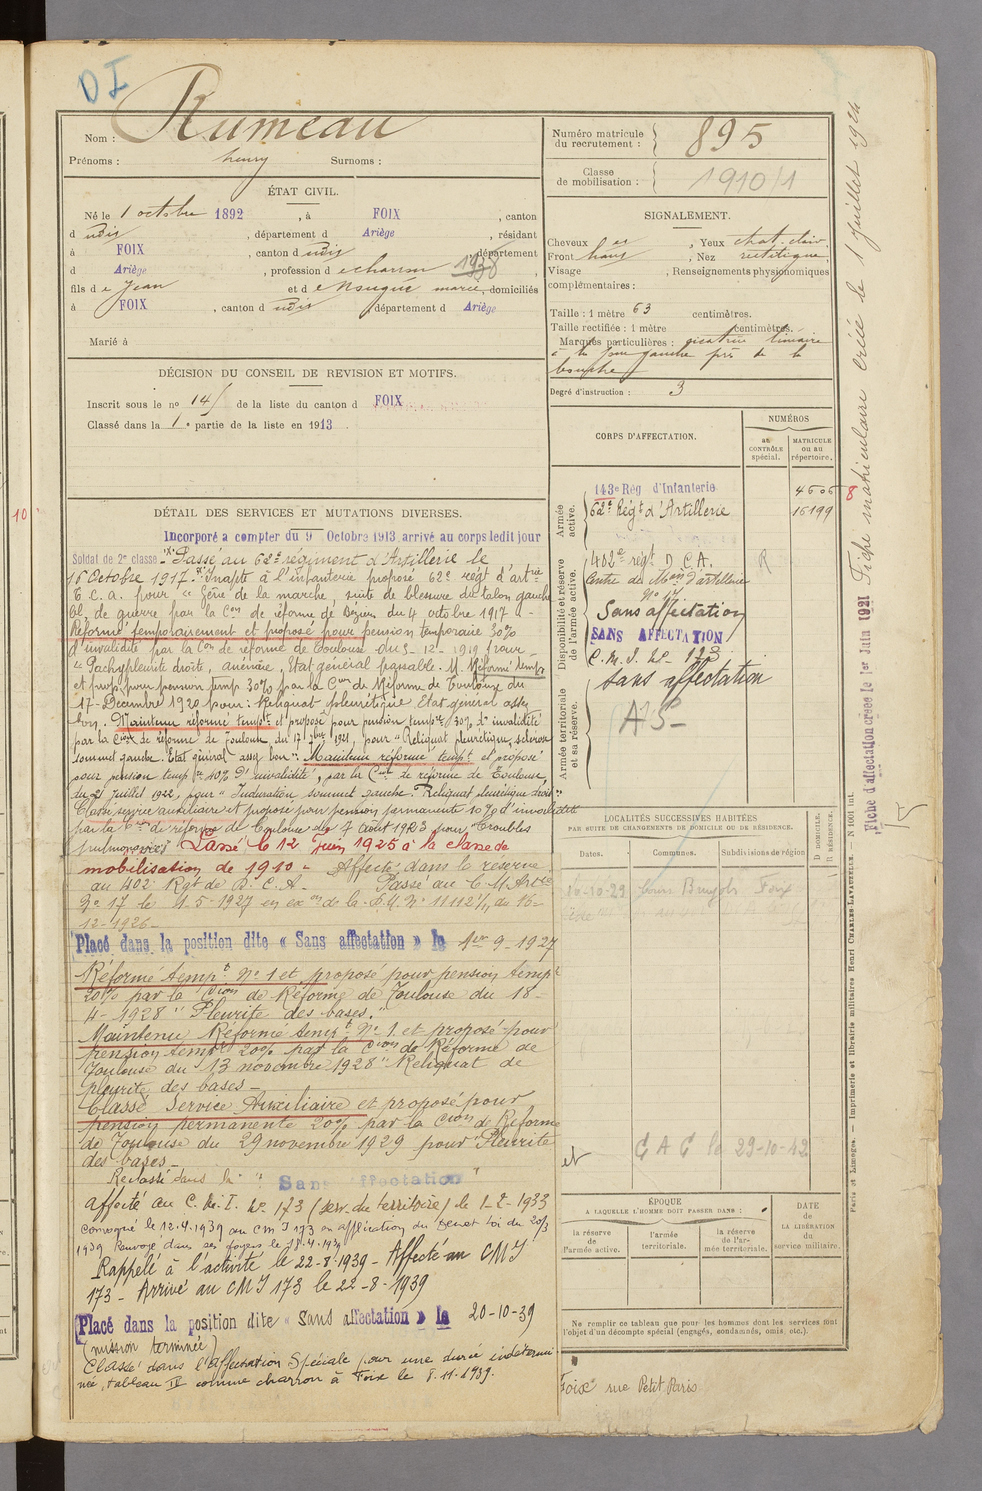 DI
Nom : Rumeau
Prénoms : henry Surnoms :
ÉTAT CIVIL.
Né le 1 octobre 1892, à FOIX, canton
d udis, département d Ariège, résidant
à FOIX, canton d udis, département
d Ariège, profession d e charron 1938,
fils d e Jean et d e Nougué marie, domiciliés
à FOIX, canton d udis, département d Ariège
Marié à
DÉCISION DU CONSEIL DE REVISION ET MOTIFS.
Inscrit sous le no 14 de la liste du canton d FOIX
Classé dans la 1e partie de la liste en 1913.
DÉTAIL DES SERVICES ET MUTATIONS DIVERSES.
Incorporé à compter du 9 Octobre 1913 arrivé au corps ledit jour
Soldat de 2e classe. Passé au 62e régiment d'Artillerie le
16 Octobre 1917. Inapte à l'infanterie proposé 62e régt d'artrie
T. C. A. pour "Gêne de la marche, suite de blessure du talon gauche
bl. de guerre par la Con de réforme de Béziers du 4 octobre 1917 -
Réformé temporairement et proposé pour pension temporaire 30%
d'invalidité par la Con de réforme de Toulouse du 3-12-1919 pour
"Pachypleurite droite, anémie, Etat général passable. M. Réformé temp
et prop pour pension temp 30% par la Con de Réforme de Toulouse du
17 Décembre 1920 pour : Reliquat pleurétique Etat général assez
bon. Maintenu réformé tempt et proposé pour pension tempre 30% d'invalidité
par la Cion de réforme de Toulouse du 17 9bre 1921, pour "Reliquat pleurétique, sclérose
sommet gauche. Etat général assez bon". Maintenu réformé tempt et proposé
pour pension tempre 40% d'invalidité, par la Con de réforme de Toulouse
du 2 juillet 1922, pour "Induration sommet gauche. Reliquat pleurétique droit"
Classé service auxiliaire et proposé pour pension permanente 10% d'invalidité
par la Con de réforme de Toulouse du 7 Août 1923 pour "Troubles
pulmonaires" Passé le 12 Juin 1925 à la classe de
mobilisation de 1910. Affecté dans la réserve
au 402e Rgt de D.C.A. Passé au C. M. Artie
No 17 le 1-5-1927 en exon de la I.M. No 11112 1/11 du 16-
12-1926-
Placé dans la position dite « Sans affectation » le 1er 9-1927
Réformé tempt No 1 et proposé pour pension tempe
20% par la Cion de Réforme de Toulouse du 18-
4-1928 "Pleurite des bases."
Maintenu Réformé tempt No 1 et proposé pour
pension tempre 20% par la Cion de Réforme de
Toulouse du 13 novembre 1928 "Reliquat de
pleurite des bases -
Classé Service Auxiliaire et proposé pour
pension permanente 20% par la Cion de Réforme
de Toulouse du 29 novembre 1929 pour "Pleurite
des bases -
Reclassé dans la " Sans Affectation "
Affecté au C. M. I. No 173 (serv. du territoire) le 1-2-1933
Convoqué le 12.4.1939 au CMI 173 en application du Décret loi du 20/3
1939 Renvoyé dans ses foyers le 18.4.1939
Rappelé à l'activité le 22-8-1939 - Affecté au CMI
173 - Arrivé au CMI 173 le 22-8-1939
Placé dans la position dite « Sans affectation » le 20-10-39
(mission terminée)
Classé dans l'affectation Spéciale pour une durée indétermi-
née, tableau II comme charron à Foix le 8.11.1939.
Numéro matricule du recrutement : 895
Classe de mobilisation : 1910/1
SIGNALEMENT.
Cheveux, Yeux chat. clair.
Front haut, Nez rectiligne
Visage, Renseignements physionomiques
complémentaires :
Taille : 1 mètre 63 centimètres.
Taille rectifiée : 1 mètre centimètres.
Marques particulières : cicatrice linéaire
à la joue gauche près de la
bouche
Degré d'instruction : 3
CORPS D'AFFECTATION.
NUMÉROS
au CONTRÔLE spécial.
MATRICULE ou au répertoire.
Armée active.
143e Rég d'Infanterie 4606
62e Régt d'Artillerie 16199
Disponibilité et réserve de l'armée active.
402e régt D.C.A. R
Centre de Mon d'artillerie
No 17
Sans affectation
SANS AFFECTATION
C. M. I. No 173
Armée territoriale et sa réserve.
Sans affectation
AS-
LOCALITÉS SUCCESSIVES HABITÉES
PAR SUITE DE CHANGEMENTS DE DOMICILE OU DE RÉSIDENCE.
Dates. Communes. Subdivisions de région
D DOMICILE.
R RÉSIDENCE.
16-10-29 Foix
et C A C le 29-10-42
ÉPOQUE
A LAQUELLE L'HOMME DOIT PASSER DANS :
la réserve de l'armée active.
l'armée territoriale.
la réserve de l'armée territoriale.
DATE de LA LIBÉRATION du service militaire.
Ne remplir ce tableau que pour les hommes dont les services font
l'objet d'un décompte spécial (engagés, condamnés, omis, etc.).
Foix rue Petit Paris
Paris et Limoges. — Imprimerie et librairie militaires Henri CHARLES-LAVAUZELLE. — N 1001 int.
Fiche matriculaire créée le 1 juillet 1924
Fiche d'affectation créée le 1er Juin 1921
8
10